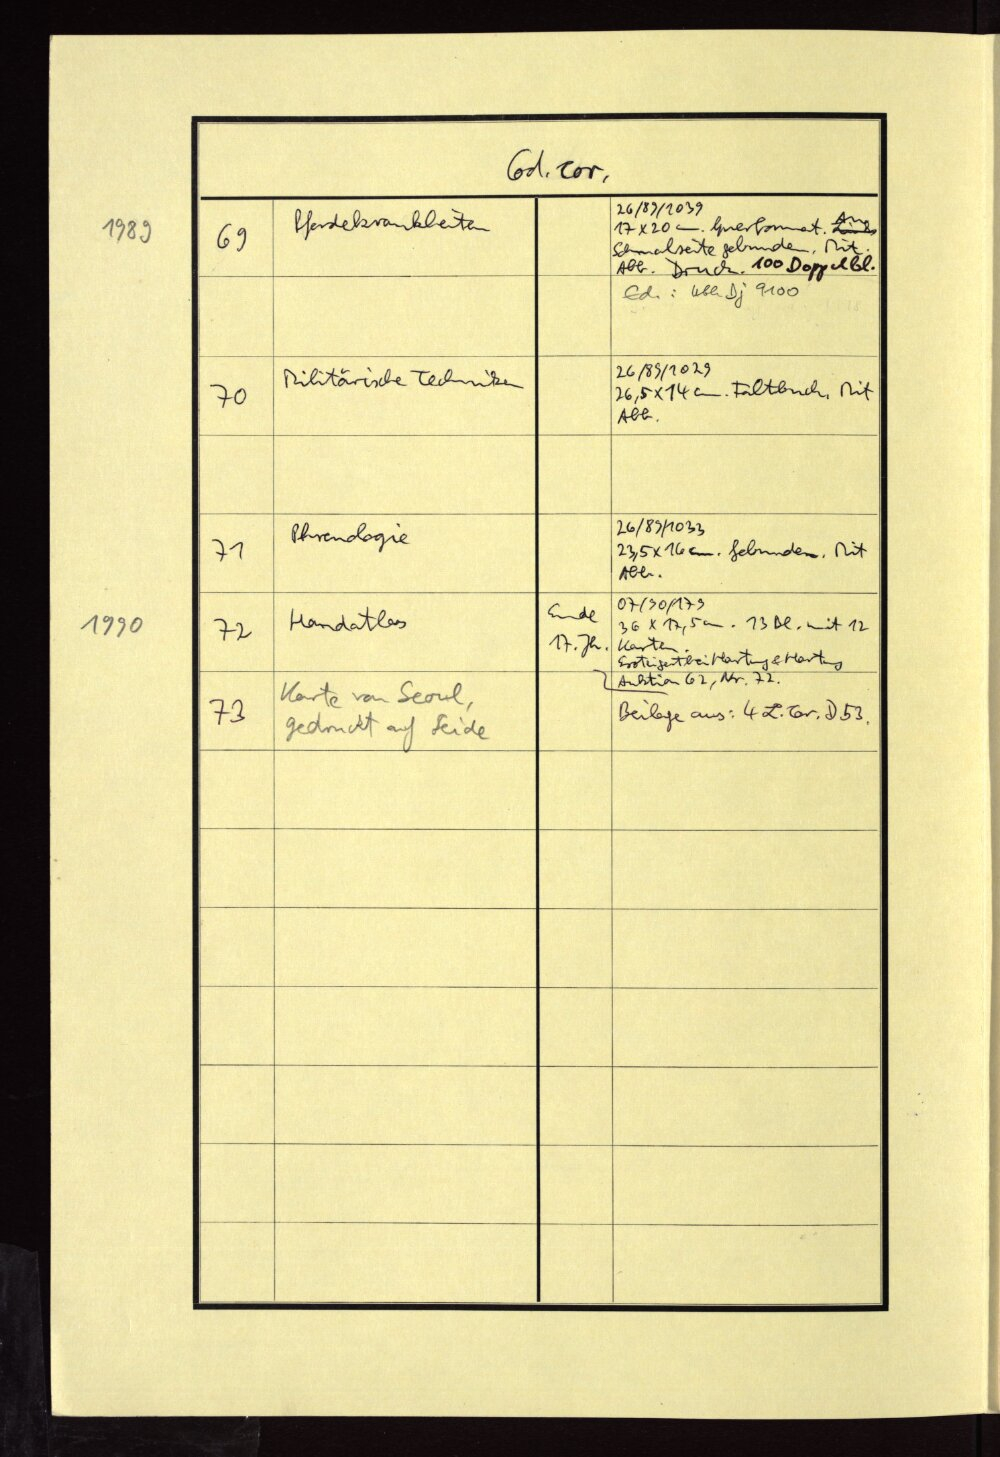 Cod. cor.
1989
69
Pferdekrankheiten
26/89/1039
17 x 20 cm. Querformat. An
Schmalseite gebunden. Mit
Abb. Druck. 100 Doppelbl.
Ed.: Dj 9100
70
Militärische Techniken
26/89/1029
26,5 x 14 cm. Faltbuch. Mit
Abb.
71
Phrenologie
26/89/1033
23,5 x 16 cm. Gebunden. Mit
Abb.
1990
72
Handatlas
Ende
17. Jh.
07/90/179
36 x 17,5 cm. 13 Bl. mit 12
Karten.
Ersteigert bei Hartung & Hartung
Auktion 62, Nr. 72.
73
Karte von Seoul,
gedruckt auf Seide
Beilage aus: 4 L. cor. D 53.